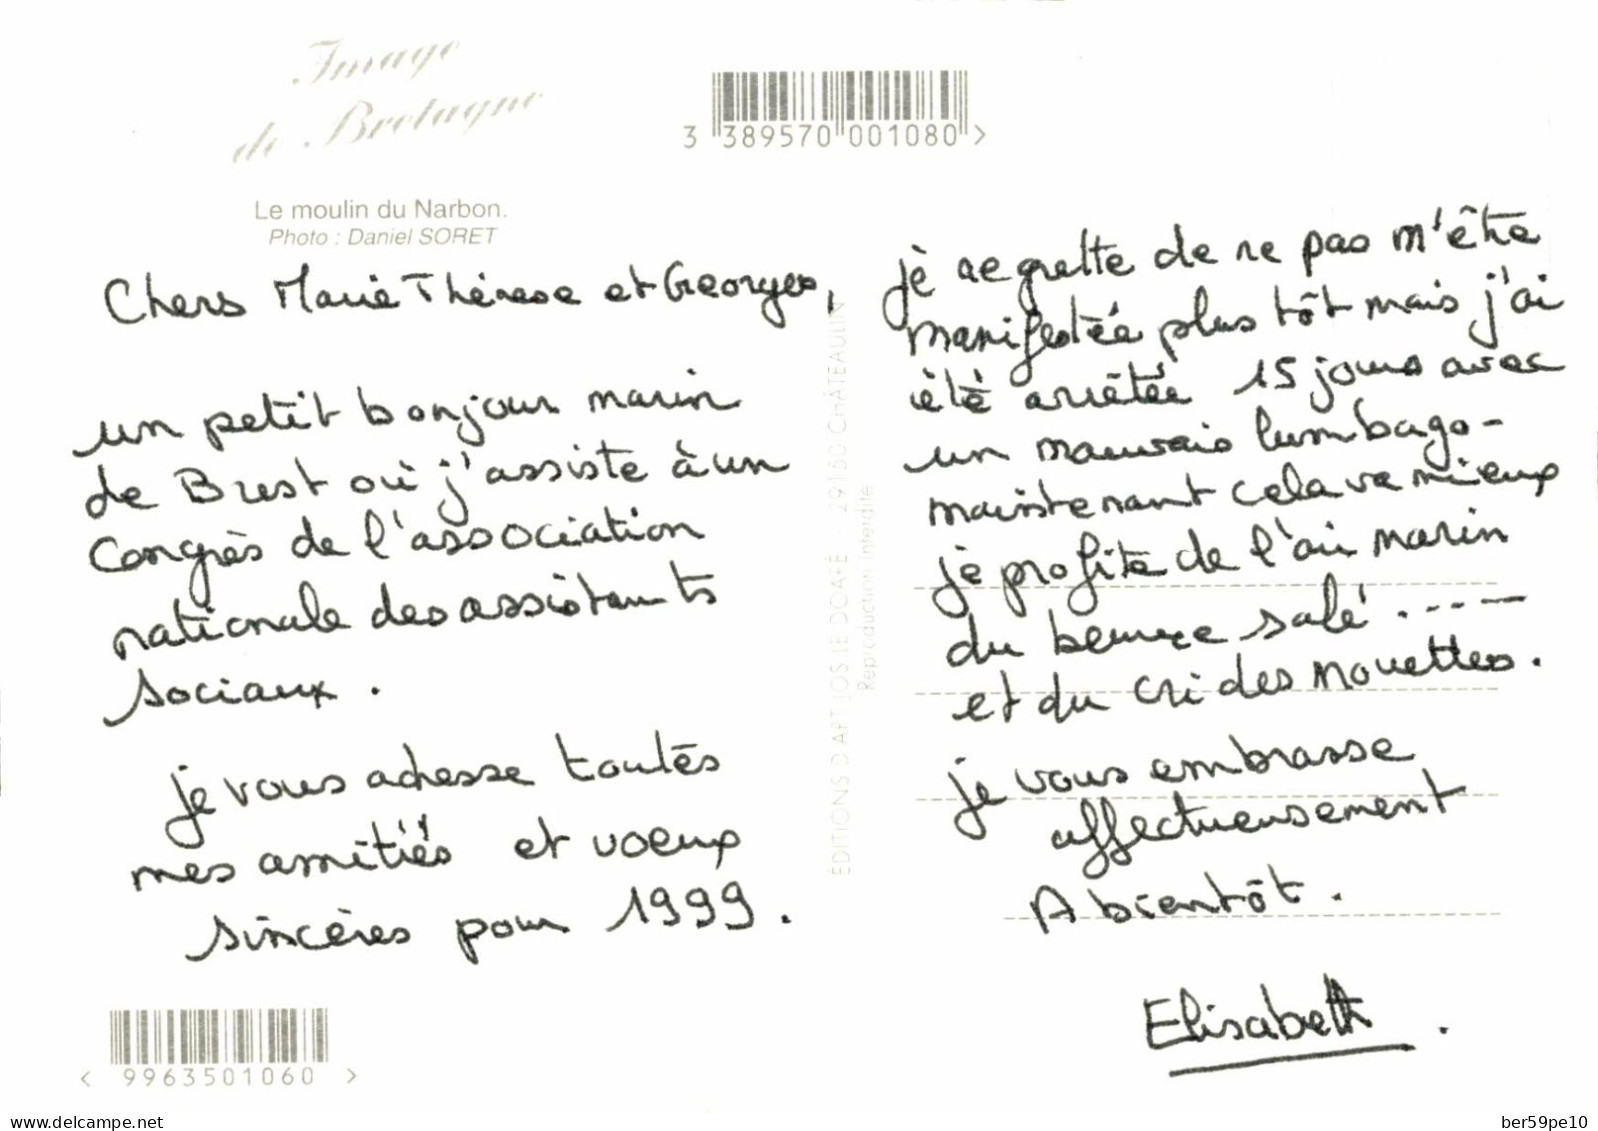 Image
de Bretagne
3 389570 001080 >
Le moulin du Narbon.
Photo : Daniel SORET
Chers Marie Thérèse et Georges,
un petit bonjour marin
de Brest où j'assiste à un
Congrès de l'association
nationale des assistants
sociaux.
je vous adresse toutes
mes amitiés et voeux
sincères pour 1999.
< 9963501060 >
ÉDITIONS D'ART JOS LE DOARÉ - 29150 CHÂTEAULIN
Reproduction interdite
je regrette de ne pas m'être
manifestée plus tôt mais j'ai
été arrêtée 15 jours avec
un mauvais lumbago -
maintenant cela va mieux
je profite de l'air marin
du beurre salé .----
et du cri des mouettes.
je vous embrasse
affectueusement
A bientôt.
Elisabeth.
www.delcampe.net
ber59pe10